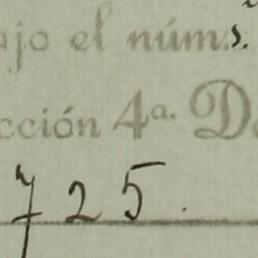 ajo el núms.
cción 4ª. D
725.